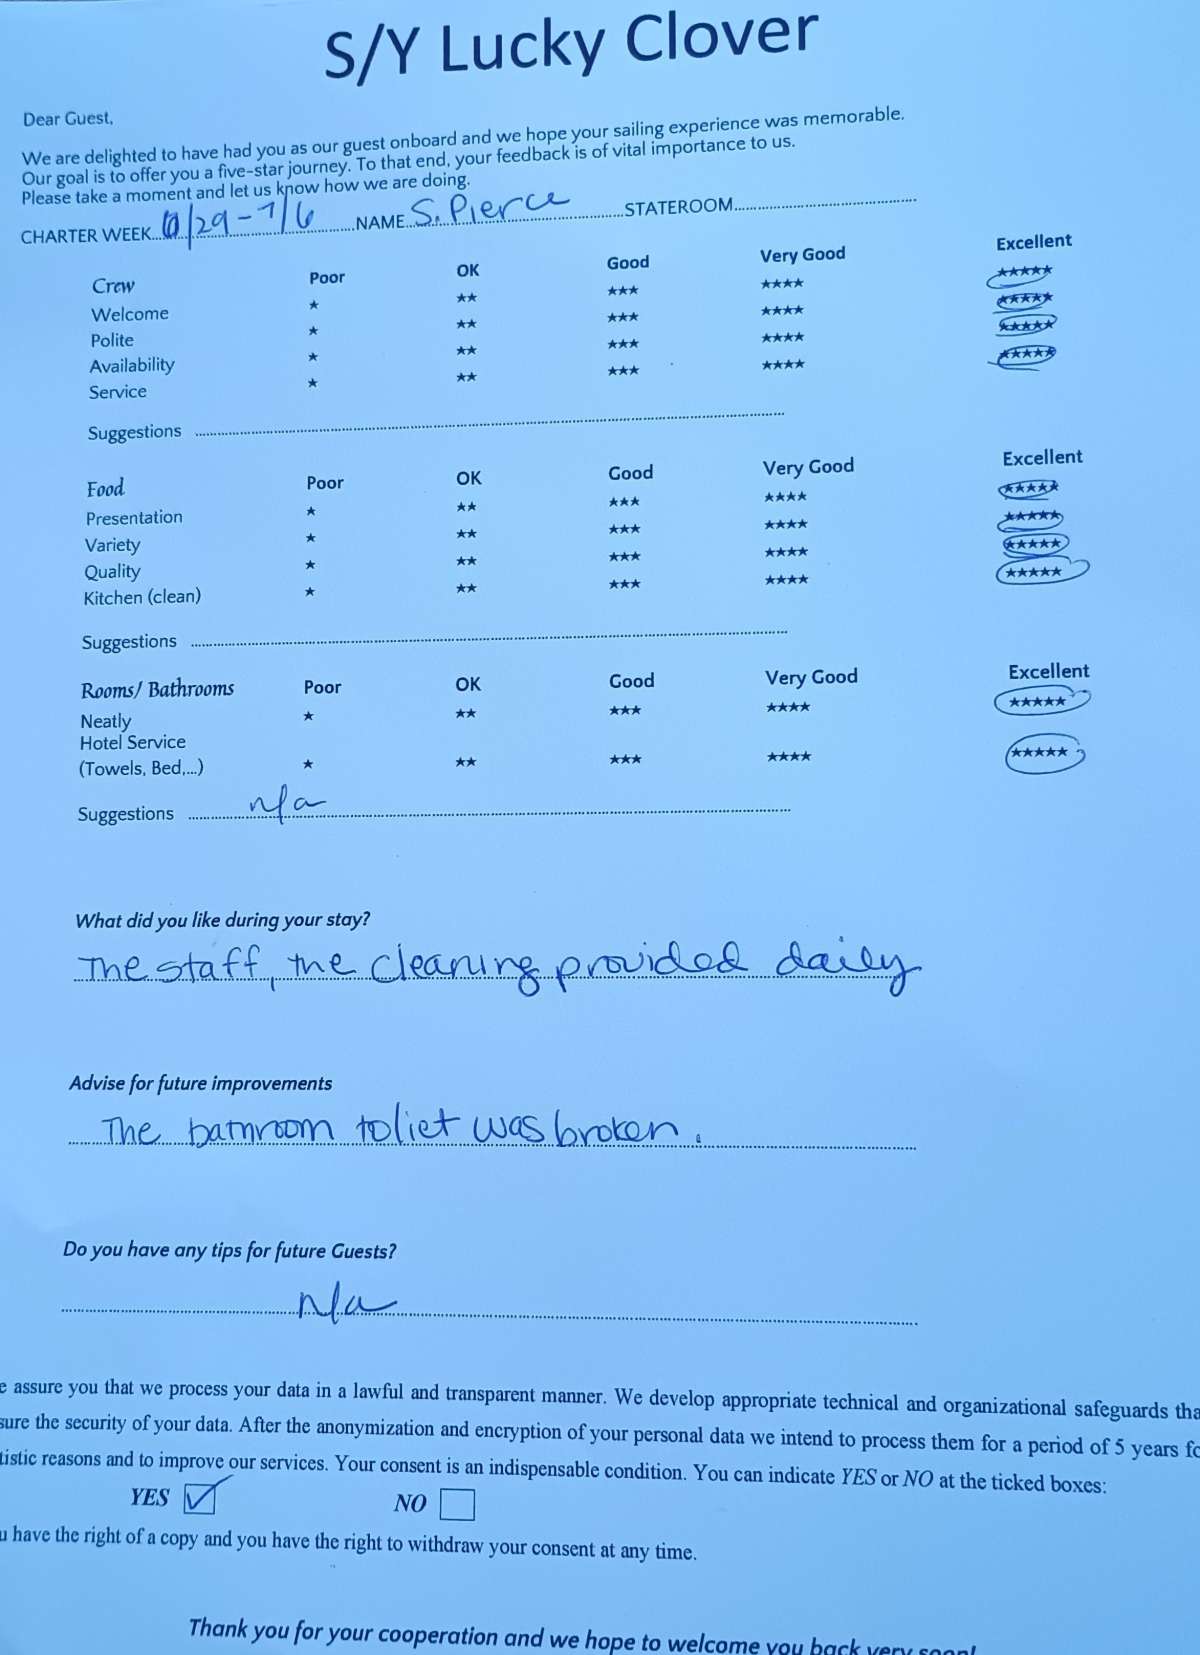 S/Y Lucky Clover
Dear Guest,
We are delighted to have had you as our guest onboard and we hope your sailing experience was memorable.
Our goal is to offer you a five-star journey. To that end, your feedback is of vital importance to us.
Please take a moment and let us know how we are doing.
CHARTER WEEK... 6/29-7/6 ...NAME... S. Pierce ...STATEROOM...
Crew Poor OK Good Very Good Excellent
Welcome ★ ★★ ★★★ ★★★★ ★★★★★
Polite ★ ★★ ★★★ ★★★★ ★★★★★
Availability ★ ★★ ★★★ ★★★★ ★★★★★
Service ★ ★★ ★★★ ★★★★ ★★★★★
Suggestions
Food Poor OK Good Very Good Excellent
Presentation ★ ★★ ★★★ ★★★★ ★★★★★
Variety ★ ★★ ★★★ ★★★★ ★★★★★
Quality ★ ★★ ★★★ ★★★★ ★★★★★
Kitchen (clean) ★ ★★ ★★★ ★★★★ ★★★★★
Suggestions
Rooms/ Bathrooms Poor OK Good Very Good Excellent
Neatly ★ ★★ ★★★ ★★★★ ★★★★★
Hotel Service
(Towels, Bed,...) ★ ★★ ★★★ ★★★★ ★★★★★
Suggestions n/a
What did you like during your stay?
The staff, the cleaning provided daily
Advise for future improvements
The bathroom toliet was broken.
Do you have any tips for future Guests?
n/a
assure you that we process your data in a lawful and transparent manner. We develop appropriate technical and organizational safeguards
the security of your data. After the anonymization and encryption of your personal data we intend to process them for a period of 5 years
reasons and to improve our services. Your consent is an indispensable condition. You can indicate YES or NO at the ticked boxes:
YES ☑ NO ☐
have the right of a copy and you have the right to withdraw your consent at any time.
Thank you for your cooperation and we hope to welcome you back very soon!